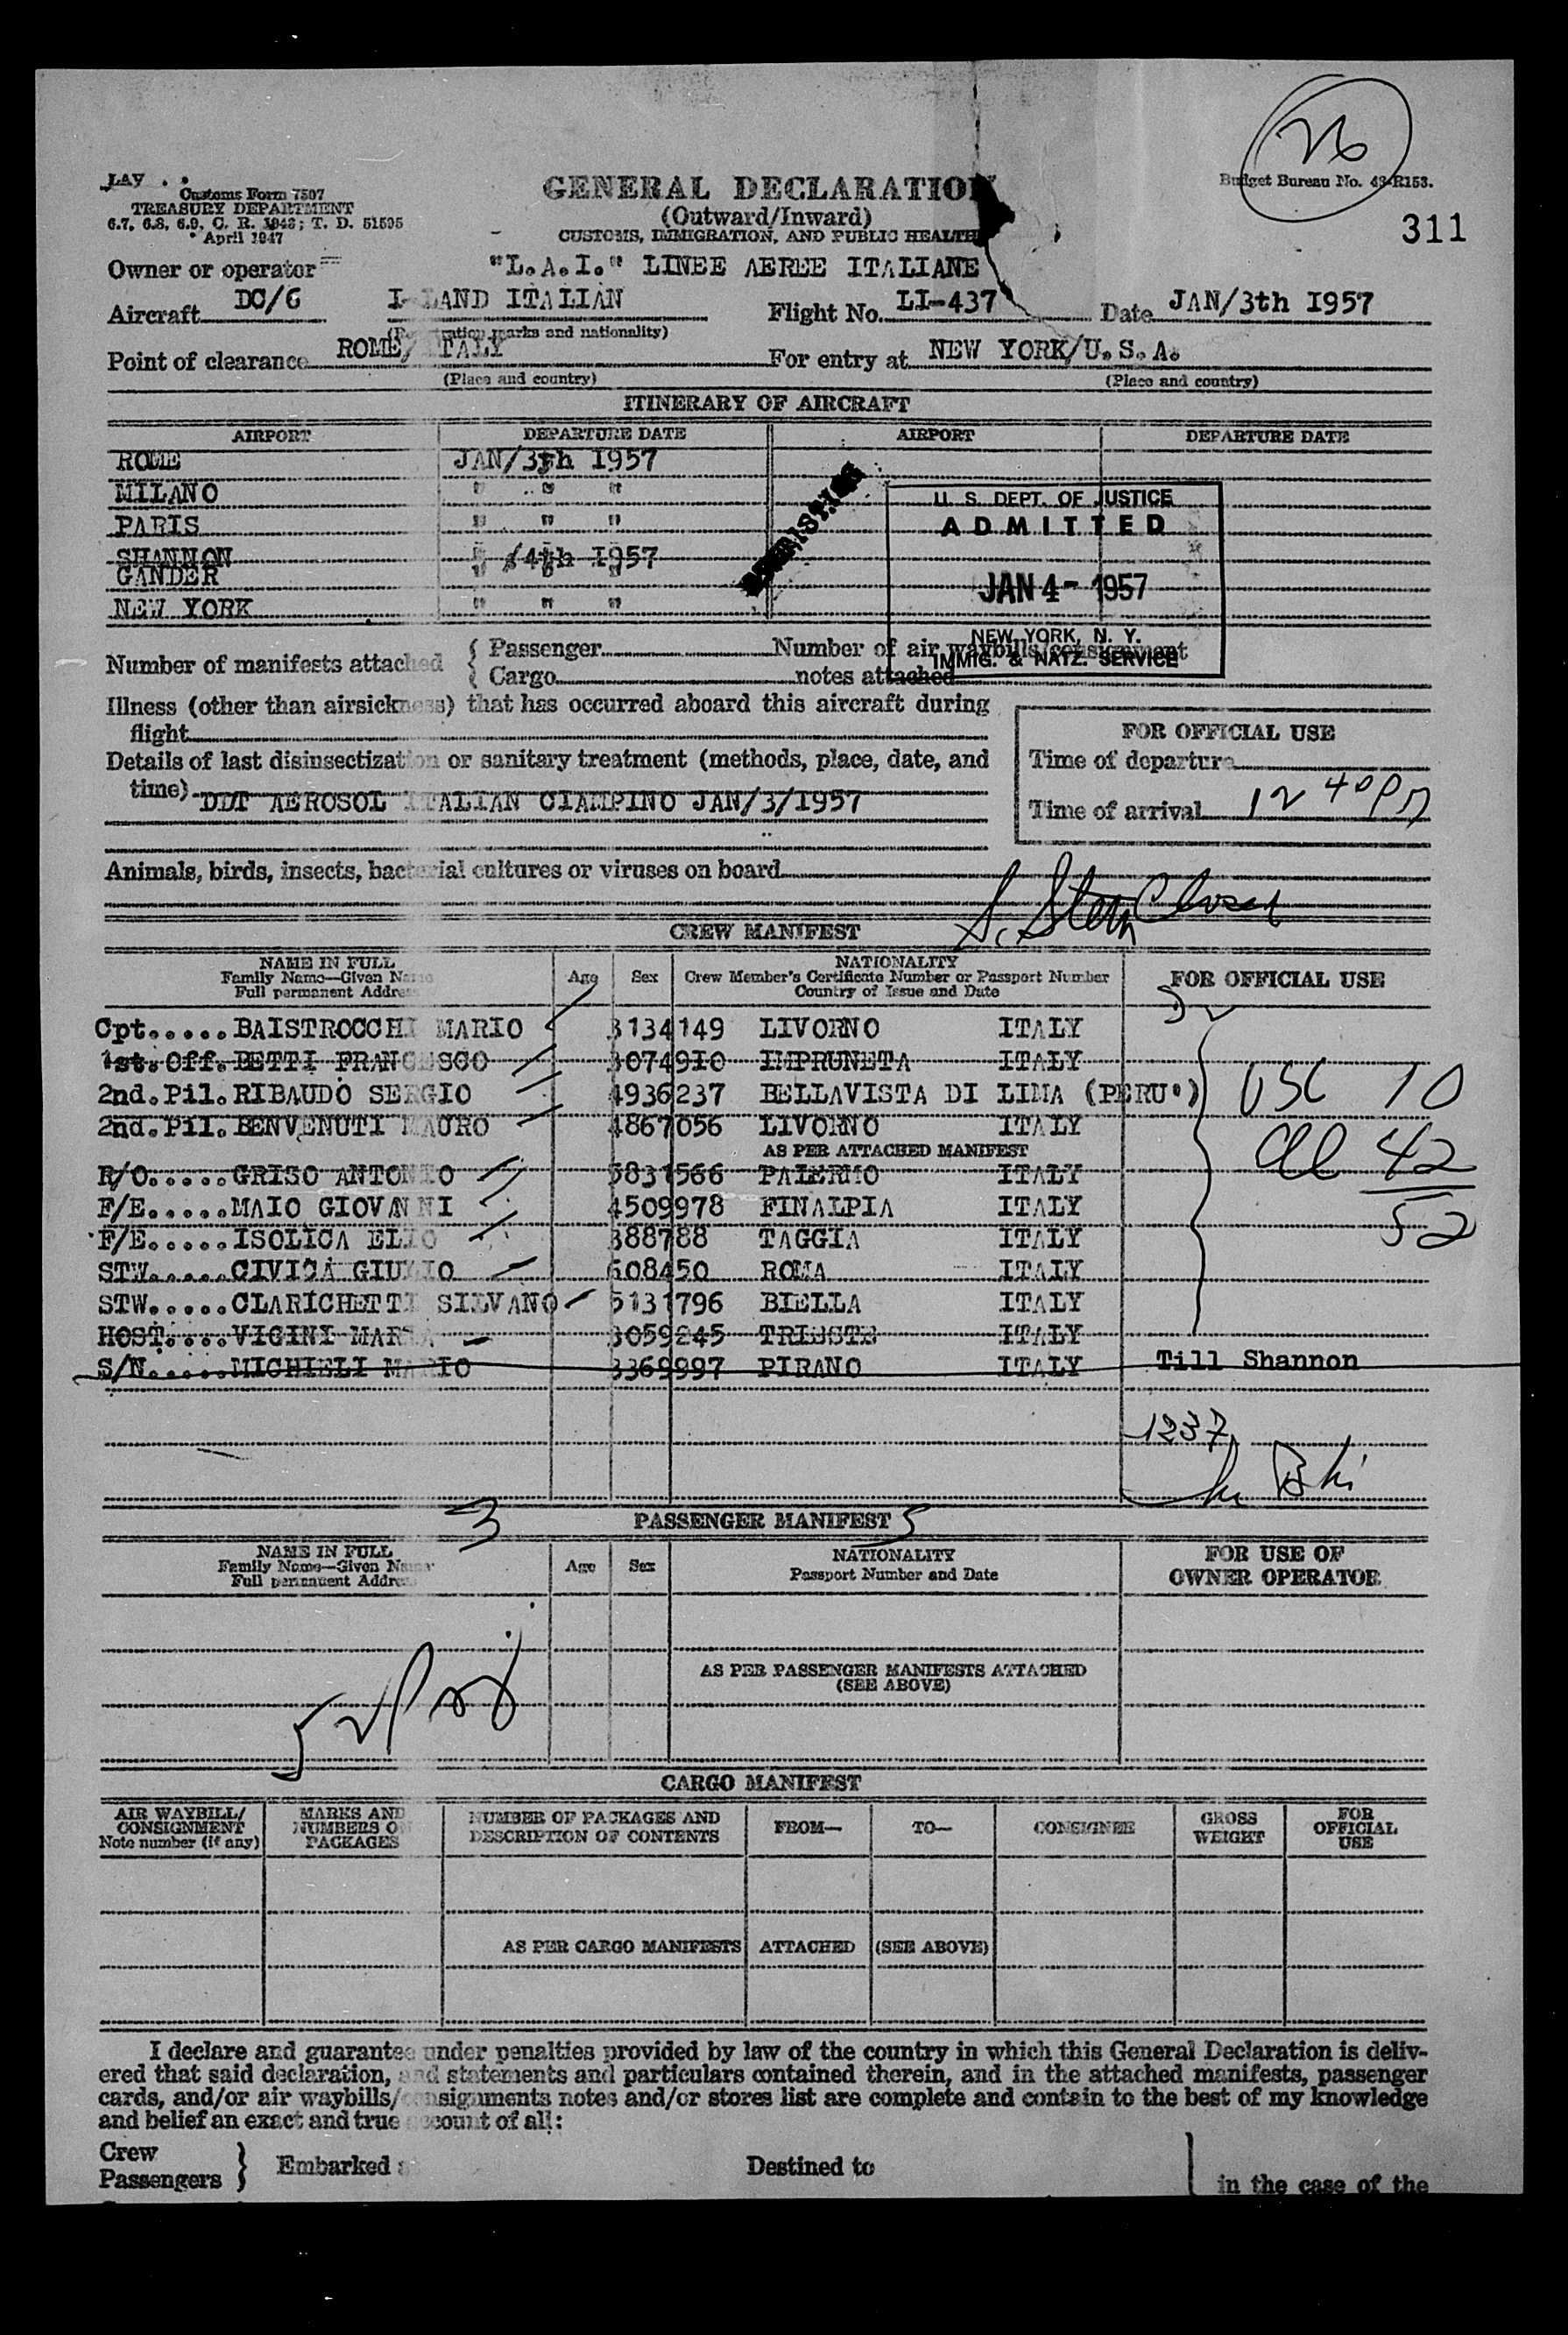 LAV . .
Customs Form 7507
TREASURY DEPARTMENT
6.7, 6.8, 6.9, C. R. 1943; T. D. 51595
April 1947
GENERAL DECLARATION
(Outward/Inward)
CUSTOMS, IMMIGRATION, AND PUBLIC HEALTH
26
Budget Bureau No. 43-R153.
311
Owner or operator "L.A.I." LINEE AEREE ITALIANE
Aircraft DC/6 I- LAND ITALIAN Flight No. LI-437 Date JAN/3th I957
marks and nationality)
Point of clearance ROME, ITALY For entry at NEW YORK/U.S.A.
(Place and country) (Place and country)
ITINERARY OF AIRCRAFT
AIRPORT DEPARTURE DATE AIRPORT DEPARTURE DATE
ROME JAN/3th I957
MILANO " " "
PARIS " " "
SHANNON " /4th I957
GANDER " " "
NEW YORK " " "
U. S. DEPT. OF JUSTICE
ADMITTED
JAN 4 - 1957
NEW YORK, N. Y.
IMMIG. & NATZ. SERVICE
Number of manifests attached { Passenger Number of air waybills/consignment
Cargo notes attached
Illness (other than airsickness) that has occurred aboard this aircraft during
flight
Details of last disinsectization or sanitary treatment (methods, place, date, and
time) DDT AEROSOL ITALIAN CIAMPINO JAN/3/I957
FOR OFFICIAL USE
Time of departure
Time of arrival 12 40 PM
Animals, birds, insects, bacterial cultures or viruses on board
S. Stern
CREW MANIFEST
NAME IN FULL
Family Name—Given Name
Full permanent Address
Age Sex
NATIONALITY
Crew Member's Certificate Number or Passport Number
Country of Issue and Date
FOR OFFICIAL USE
Cpt..... BAISTROCCHI MARIO 3134149 LIVORNO ITALY
1st.Off. BETTI FRANCESCO 3074910 IMPRUNETA ITALY
2nd.Pil. RIBAUDO SERGIO 4936237 BELLAVISTA DI LIMA (PERU')
2nd.Pil. BENVENUTI MAURO 4867056 LIVORNO ITALY
AS PER ATTACHED MANIFEST
R/O..... GRISO ANTONIO 5831566 PALERMO ITALY
F/E..... MAIO GIOVANNI 4509978 FINALPIA ITALY
F/E..... ISOLICA ELIO 388788 TAGGIA ITALY
STW..... CIVICA GIULIO 608450 ROMA ITALY
STW..... CLARICHETTI SILVANO 5131796 BIELLA ITALY
HOST.... VIGINI MARIA 3059245 TRIESTE ITALY
S/N..... MICHIELI MARIO 3369997 PIRANO ITALY Till Shannon
USC 10
42
52
1237
PASSENGER MANIFEST
NAME IN FULL
Family Name—Given Name
Full permanent Address
Age Sex
NATIONALITY
Passport Number and Date
FOR USE OF
OWNER OPERATOR
AS PER PASSENGER MANIFESTS ATTACHED
(SEE ABOVE)
CARGO MANIFEST
AIR WAYBILL/
CONSIGNMENT
Note number (if any)
MARKS AND
NUMBERS OF
PACKAGES
NUMBER OF PACKAGES AND
DESCRIPTION OF CONTENTS
FROM— TO— CONSIGNEE
GROSS
WEIGHT
FOR
OFFICIAL
USE
AS PER CARGO MANIFESTS ATTACHED (SEE ABOVE)
I declare and guarantee under penalties provided by law of the country in which this General Declaration is deliv-
ered that said declaration, and statements and particulars contained therein, and in the attached manifests, passenger
cards, and/or air waybills/consignments notes and/or stores list are complete and contain to the best of my knowledge
and belief an exact and true account of all:
Crew
Passengers } Embarked Destined to in the case of the